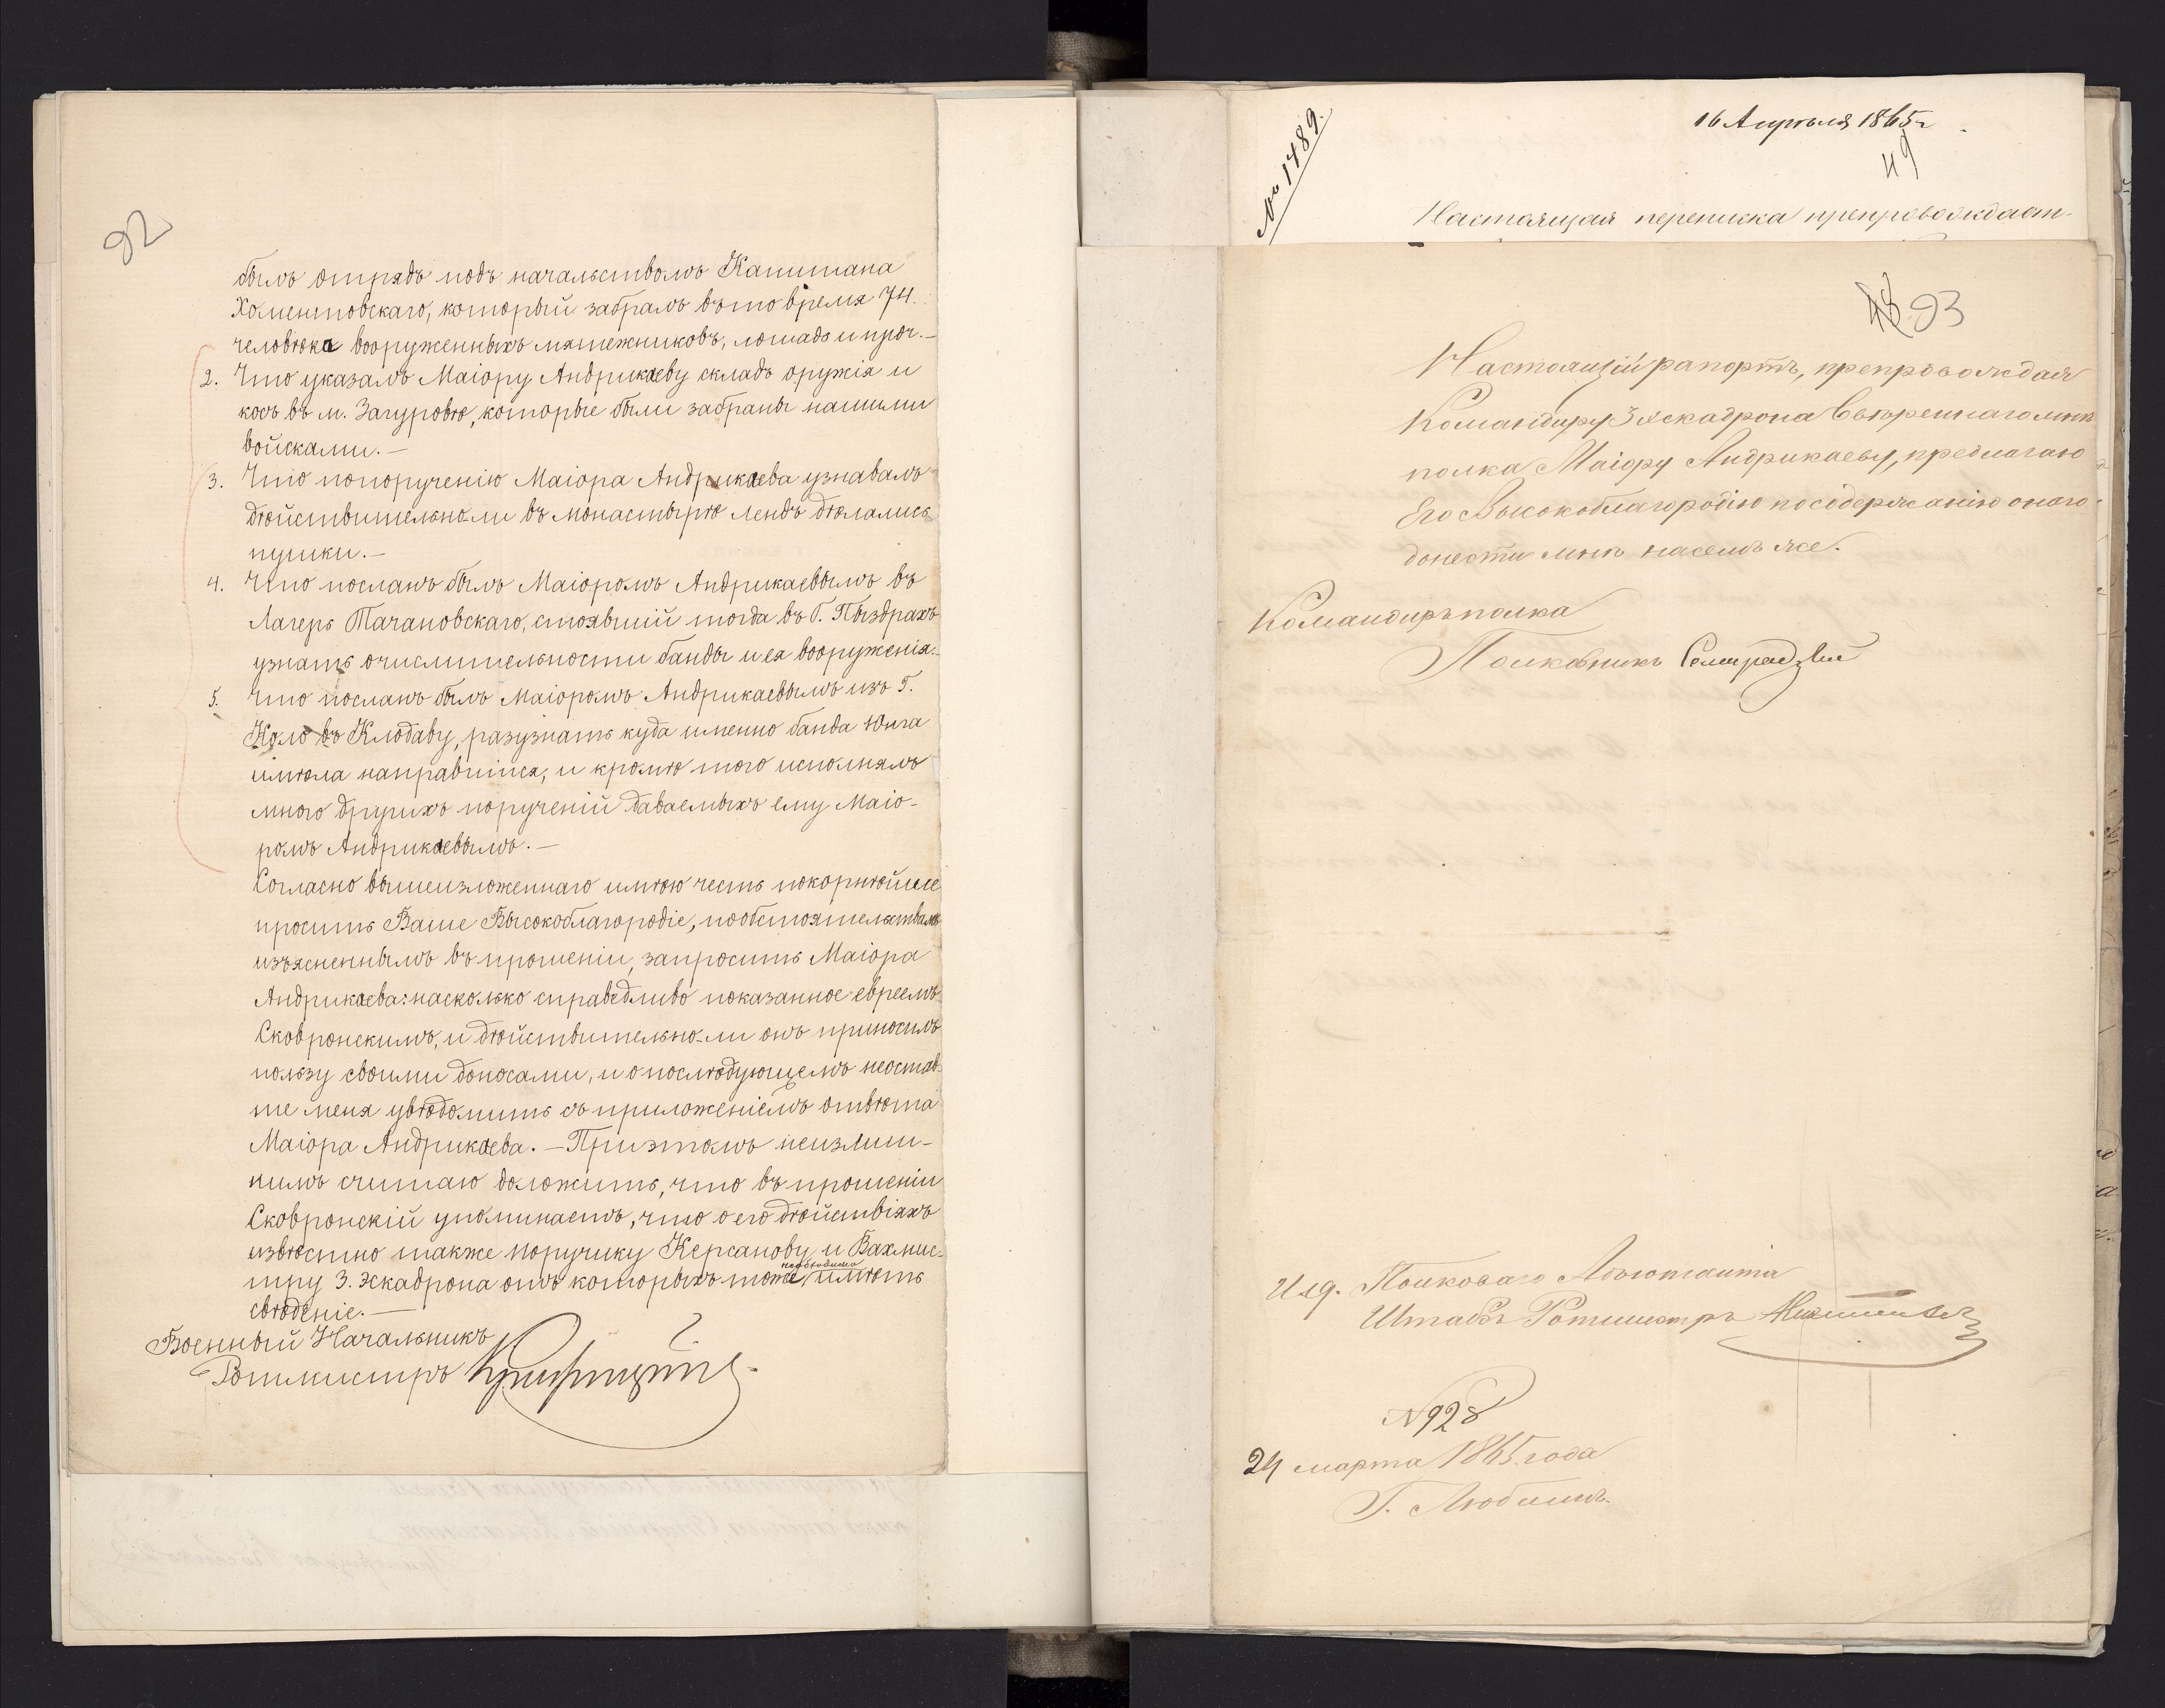 92
былъ отрядъ подъ начальствомъ Капитана
Хоментовскаго, который забралъ въ то время 74.
человѣка вооруженныхъ мятежниковъ, лошадь и проч.—
2. Что указалъ Маіору Андрикаеву складъ оружія и
косъ въ м. Загуровѣ, которые были забраны нашими
войсками.—
3. Что попорученію Маіора Андрикаева узнавалъ
дѣйствительно ли въ монастырѣ Лендъ дѣлались
пушки.—
4. Что посланъ былъ Маіоромъ Андрикаевымъ въ
Лагерь Тачановскаго, стоявшій тогда въ Г. Пыздрахъ
узнать очислительности банды и ея вооруженія.—
5. Что посланъ былъ Маіоромъ Андрикаевымъ изъ Г.
Коло въ Клодаву, разузнать куда именно банда Юнга
имѣла направиться, и кромѣ того исполнялъ
много другихъ порученій даваемыхъ ему Маіо-
ромъ Андрикаевымъ.—
Согласно вышеизложеннаго имѣю честь покорнѣйше
просить Ваше Высокоблагородіе, пообстоятельствамъ
изъясненнымъ въ прошеніи, запросить Маіора
Андрикаева: насколько справедливо показанное евреемъ
Сковронскимъ, и дѣйствительно-ли онъ приносилъ
пользу своими доносами, и о послѣдующемъ неостав-
те меня увѣдомить съ приложеніемъ отвѣта
Маіора Андрикаева.— Приэтомъ неизлиш-
нимъ считаю доложить, что въ прошеніи
Сковронскій упоминаетъ, что о его дѣйствіяхъ
извѣстно также поручику Керсанову и Вахмис-
тру 3. Эскадрона отъ которыхъ тоже необходимо имѣть
свѣденіе.—
Военный Начальникъ
Ротмистръ
№ 1489.
16 Апрѣля 1865 г.
49
Настоящая переписка препровождает-
48 93
Настоящій рапортъ, препровождая
Командиру 3 эскадрона Ввѣреннаго мнѣ
полка Маіору Андрикаеву, предлагаю
Его Высокоблагородію по содержанію онаго
донести мнѣ на семъ же.
Командиръ полка
Полковникъ
Исд. Полковаго Адъютанта
Штабсъ Ротмистръ
№ 928
24 марта 1865 года
Г. Люблинъ.